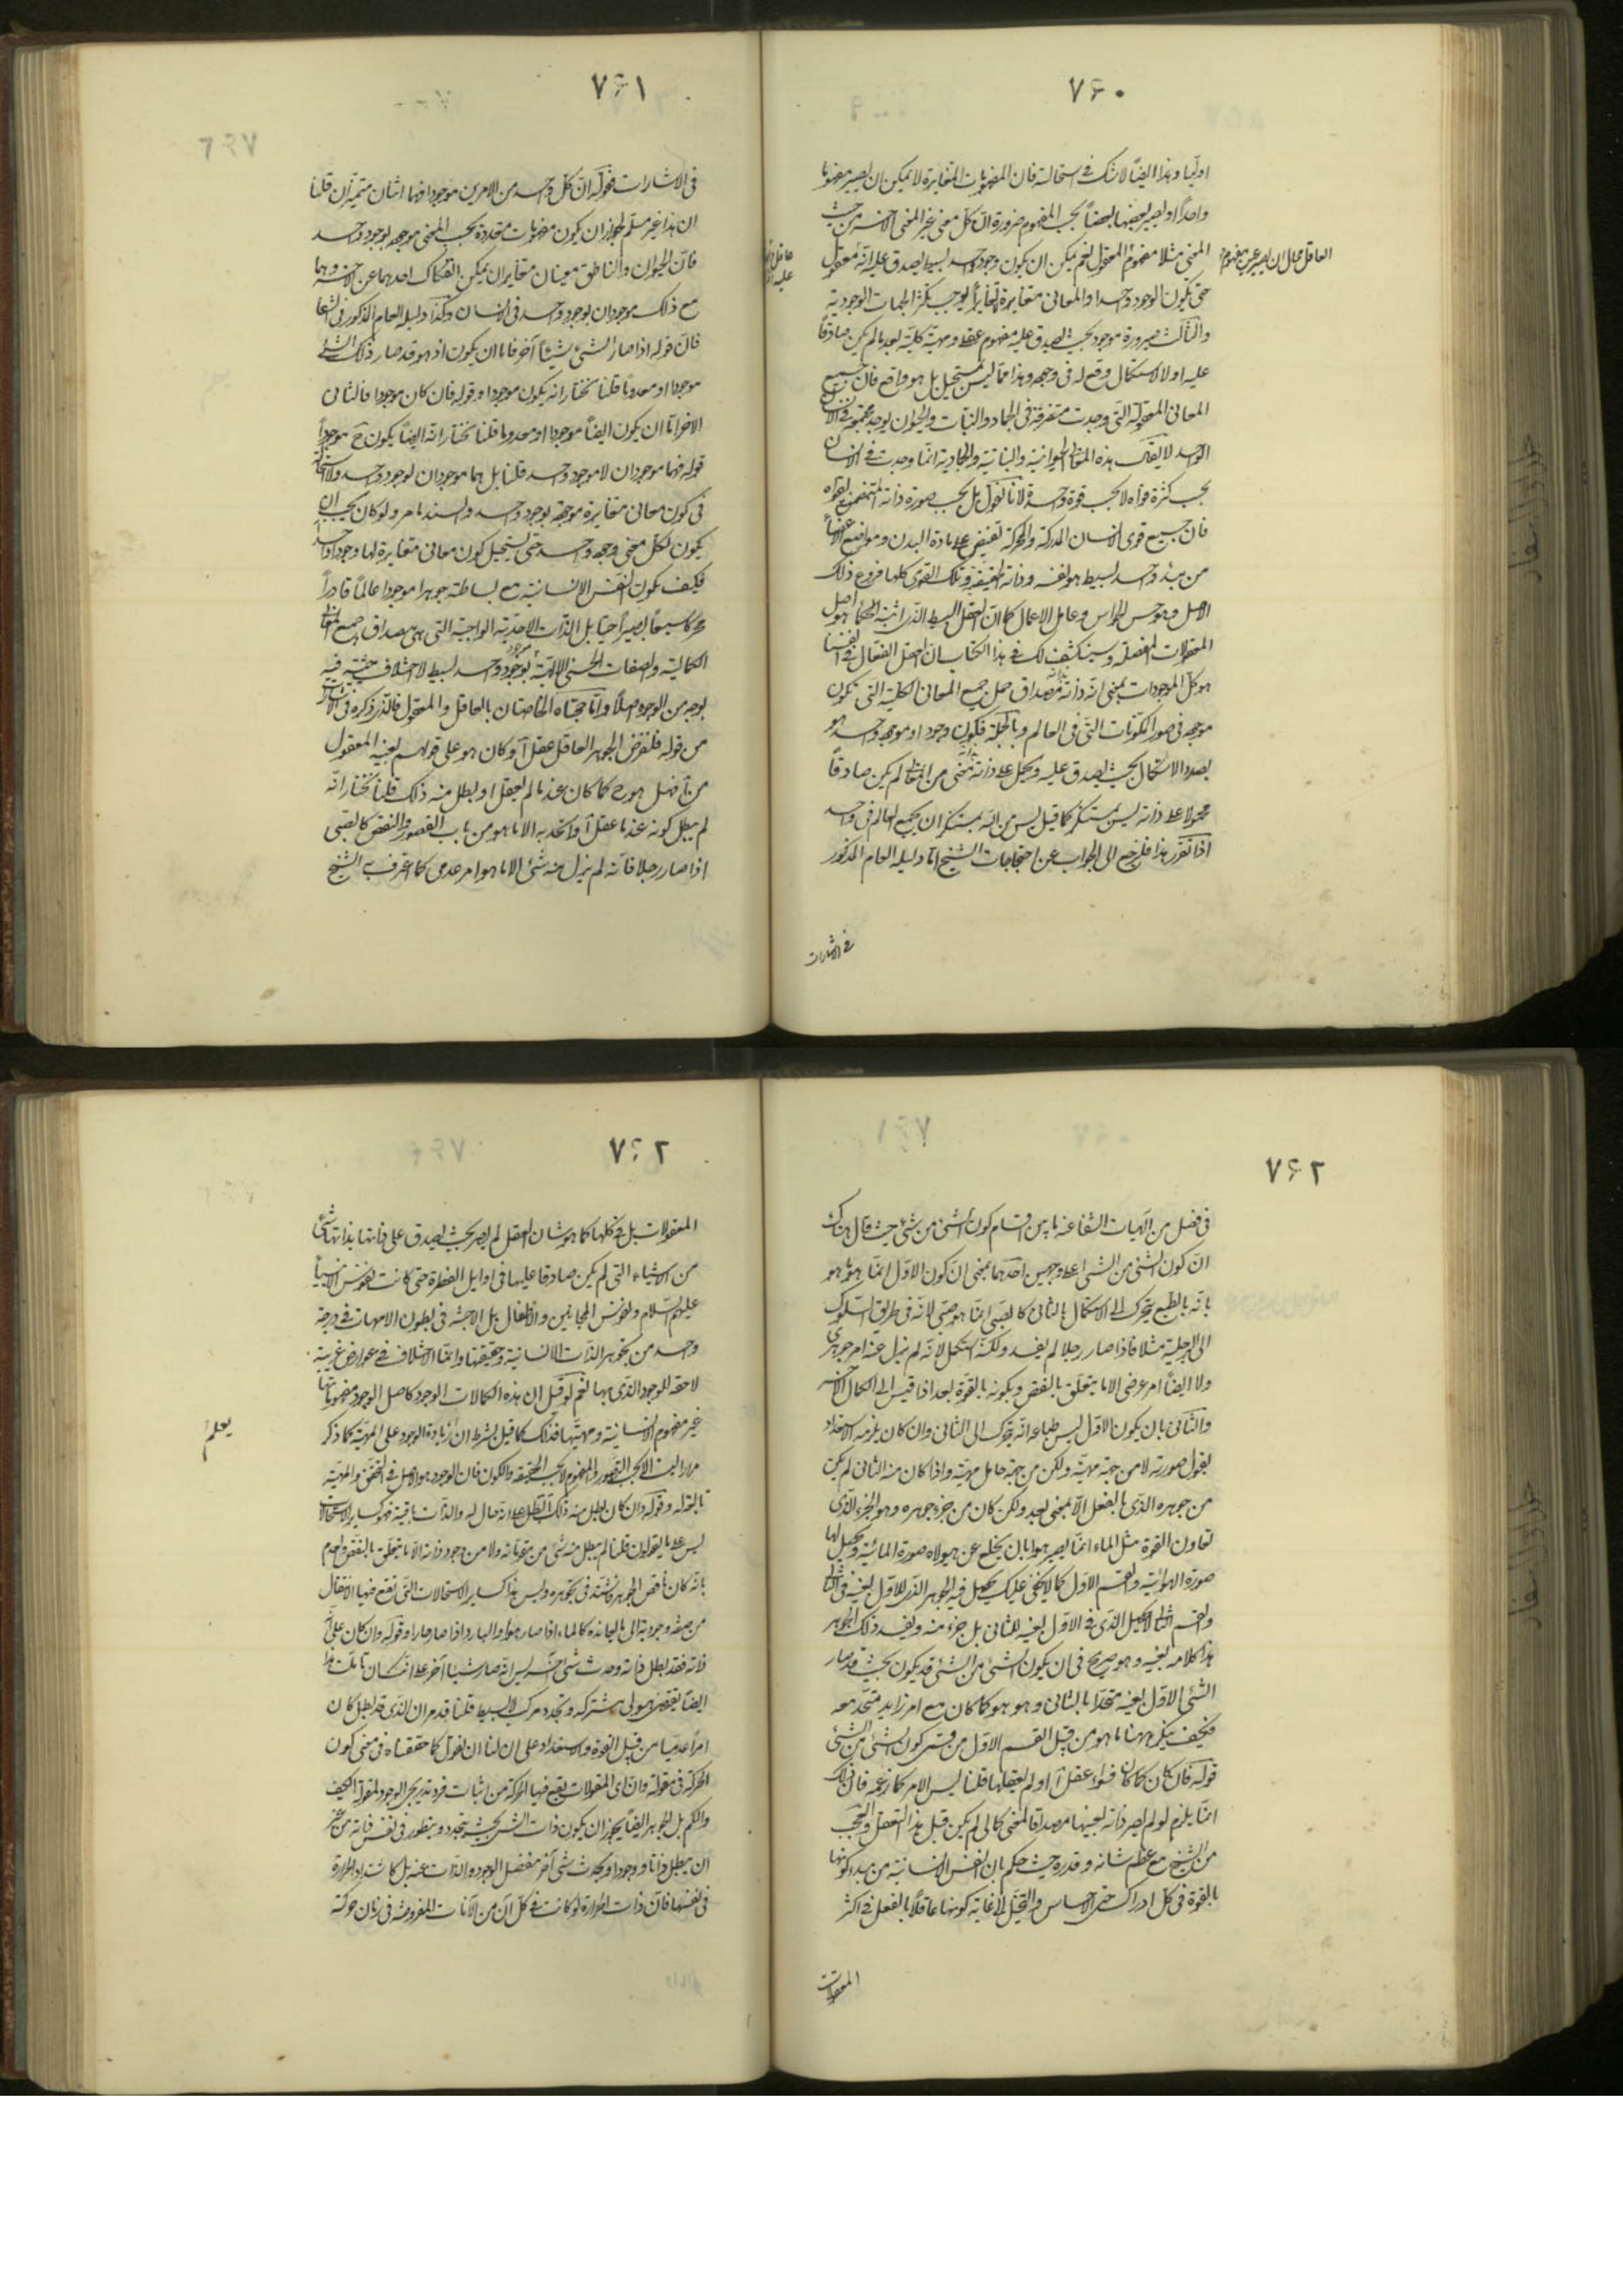 ٧۶٠
اوليا وهذا ايضاً لا شك فى استحالته فان المفهومات المتغايرة لا يمكن ان يصير مفهوما
واحداً او يصير بعضها بعضاً بحسب المفهوم ضرورة ان كل معنى غير المعنى الآخر من حيث
المعنى مثلا مفهوم المعقول نعم يمكن ان يكون وجود واحد بسيط يصدق عليه انه معقول
العاقل محال ان يصير عين مفهوم
حتى يكون الوجود واحدا والمعانى متغايرة لا تغايراً يوجب تكثر الجهات الوجودية
والثالث صيرورة موجود بحيث يصدق عليه مفهوم عقلى ومهية كلية بعد ما لم يكن صادقاً
عليه اولا لاستكمال وقع له فى وجوده وهذا مما ليس بمستحيل بل هو واقع فان جميع
المعانى المعقولة التى وجدت متفرقة فى الجماد والنبات والحيوان يوجد مجتمعة فى الانسان
الواحد لا يقال هذه المعانى الحيوانية والنباتية والجمادية انما وجدت فى الانسان
بحسب كثرة قواه لا بحسب قوة واحدة لانا نقول بل بحسب صورة ذاته المتضمنة لقواه
فان جميع قوى الانسان المدركة والمحركة تفيض على مادة البدن ومواضع الاعضاء
من مبدء واحد بسيط هو نفسه وذاته الحقيقية وتلك القوى كلها فروع ذلك
الاصل وهو حس الحواس وعامل الاعمال كما ان العقل البسيط الذى اثبته الحكماء هو اصل
المعقولات المفصلة وسينكشف لك فى هذا الكتاب ان العقل الفعال فى انفسنا
هو كل الموجودات بمعنى ان ذاته بذاته مصداق حمل جميع المعانى الكلية التى تكون
موجودة فى صور المكونات التى فى العالم وبالجملة فكون وجود او موجود واحد هو
بصدد الاستكمال بحيث يصدق عليه ويحمل على ذاته بذاته معنى من المعانى لم يكن صادقاً
محمولا على ذاته ليس بمستنكر كما قيل ليس من الله بمستنكر ان يجمع العالم فى واحد
اذا تقرر هذا فلنرجع الى الجواب عن احتجاجات الشيخ اما دليله العام المذكور
فى الاشارات
٧۶١
فى الاشارات فقوله ان كل واحد من الامرين موجودا فهما اثنان متميزان قلنا
ان هذا غير مسلم لجواز ان يكون مفهومات متعددة بحسب المعنى موجودة بوجود واحد
فان الحيوان والناطق معنيان متغايران يمكن انفكاك احدهما عن الآخر وهما
مع ذلك موجودان بوجود واحد فى الانسان وكذا دليله العام المذكور فى الشفا
فان قوله اذا صار الشئ شيئاً آخر فاما ان يكون اذ هو قد صار ذلك الشئ
موجودا او معدوما قلنا نختار انه يكون موجودا وقوله فان كان موجودا فالثانى
الآخر اما ان يكون ايضاً موجودا او معدوما قلنا نختار انه ايضاً يكون ح موجوداً
قوله فهما موجودان لا موجود واحد قلنا بل هما موجودان بوجود واحد ولا استحالة
فى كون معانى متغايرة موجودة بوجود واحد والسند ما مر ولو كان يجب ان
يكون لكل معنى وجود واحد حتى يستحيل كون معانى متغايرة لها وجود واحد
فكيف يكون النفس الانسانية مع بساطته جوهرا موجودا عالماً قادراً
محركا سميعاً بصيراً حياً بل الذات الاحدية الواجبية التى هى مصداق جميع المعانى
الكمالية والصفات الحسنى الالهية بوجود واحد بسيط لا اختلاف حيثية فيه
بوجه من الوجوه اصلاً واما حجتاه الخاصتان بالعاقل والمعقول فالذى ذكره فى الاشارات
من قوله فلنفرض الجوهر العاقل عقل آ وكان هو على قولهم بعينه المعقول
من آ فهل هو ح كما كان عند ما لم يعقل او بطل منه ذلك قلنا نختار انه
لم يبطل كونه عند ما عقل آ واتحد به الا ما هو من باب القصور والنقص كالصبى
اذا صار رجلا فانه لم يزل منه شئ الا ما هو امر عدمى كما اعترف به الشيخ
٧۶٢
فى فصل من الهيات الشفا عند ما بين اقسام كون الشئ من شئ حيث قال هناك
ان كون الشئ من الشئ على وجهين احدهما بمعنى ان يكون الاول انما هو ما هو
بانه بالطبع يتحرك الى الاستكمال بالثانى كالصبى انما هو صبى لانه فى طريق السلوك
الى الرجلية مثلا فاذا صار رجلا لم يفسد ولكنه استكمل لانه لم يزل عنه امر جوهرى
ولا ايضاً امر عرضى الا ما يتعلق بالنقص وبكونه بالقوة بعد اذا قيس الى الكمال الآخر
والثانى بان يكون الاول ليس طباعه انه يتحرك الى الثانى وان كان يلزمه الاستعداد
لقبول صورته لا من جهة مهيته ولكن من جهة حامل مهيته واذا كان منه الثانى لم يكن
من جوهره الذى بالفعل الا بمعنى بعد ولكن كان من جزء جوهره وهو الجزء الذى
تقاون القوة مثل الماء انما يصير هواء بان يخلع عن هيولاه صورة المائية ويحصل لها
صورة الهوائية والقسم الاول كما لا يخفى عليك يحصل فيه الجوهر الذى للاول بعينه فى الثانى
والقسم الثانى لا يحصل الذى فى الاول بعينه للثانى بل جزء منه ويفسد ذلك الجوهر
هذا كلامه بعينه وهو صريح فى ان يكون الشئ من الشئ قد يكون بحيث قد صار
الشئ الاول بعينه متحدا بالثانى وهو هو كما كان مع امر زايد متحد معه
فكيف ينكر ههنا ما هو من قبيل القسم الاول من قسمى كون الشئ من الشئ
قوله فان كان كما كان فسواء عقل آ او لم يعقلها قلنا ليس الامر كما زعمه فان ذلك
انما يلزم لو لم يصر ذاته بعينها مصداقا لمعنى كمالى لم يكن قبل هذا التعقل والعجب
من الشيخ مع عظم شانه وقدره حيث حكم بان النفس الانسانية من مبدء كونها
بالقوة فى كل ادراك حتى الاحساس والتخيل الى غاية كونها عاقلاً بالفعل فى اكثر
المعقولات
٧۶٢
المعقولات بل فى كلها كما هو شان العقل لم يصر بحيث يصدق على ذاتها بذاتها شئ
من الاشياء التى لم يكن صادقا عليها فى اوايل الفطرة حتى كانت نفوس الانبياء
عليهم السلام ونفوس المجانين والاطفال بل الاجنة فى بطون الامهات فى درجة
واحدة من تجوهر الذات الانسانية وحقيقتها وانما الاختلاف فى عوارض غريبة
لاحقة للوجود الذى لها نعم لو قيل ان هذه الكمالات الوجود كاصل الوجود مفهوماتها
غير مفهوم الانسانية ومهيتها فذلك كما قيل بشرط ان زيادة الوجود على المهية كما ذكر
مرارا ليست الا بحسب التصور والمفهوم لا بحسب الحقيقة والكون فان الوجود هو الاصل فى التحقق والمهية
تابعة له وقوله وان كان بطل منه ذلك ابطل على انه حال له والذات باقية فهو كساير الاستحالات
ليس على ما يقولون قلنا لم يبطل منه شئ من مقوماته ولا من وجود ذاته الا ما يتعلق بالنقص والعدم
بانه كان ناقص الجوهر فاشتد فى تجوهره وليس هذا كساير الاستحالات التى تقع فيها الانتقال
من صفة وجودية الى ما يعانده كالماء اذا صار هواء والبارد اذا صار حارا وقوله وان كان على
ذاته فقد بطل ذاته وحدث شئ آخر ليس انه صار شيئا آخر على انك ان تاملت هذا
ايضاً يقتضى هيولى مشتركة وتجدد مركب لا بسيط قلنا قد مر ان الذى قد بطل كان
امراً عدميا من قبيل القوة والاستعداد على ان لنا ان نقول كما حققناه فى معنى كون
الحركة فى مقولة وان اى المقولات يقع فيها الحركة من اثبات فرد تدريجى الوجود لمقولة الكيف
والكم بل للجوهر ايضاً يجوز ان يكون ذات الشئ بحيث يتجدد ويتطور فى نفس ذاته من غير
ان يبطل ذاتا ووجودا ويحدث شئ آخر منفصل الوجود والذات عنه بل كاشتداد الحرارة
فى نفسها فان ذات الحرارة لو كانت فى كل آن من الآنات المفروضة فى زمان حركة
يعلم